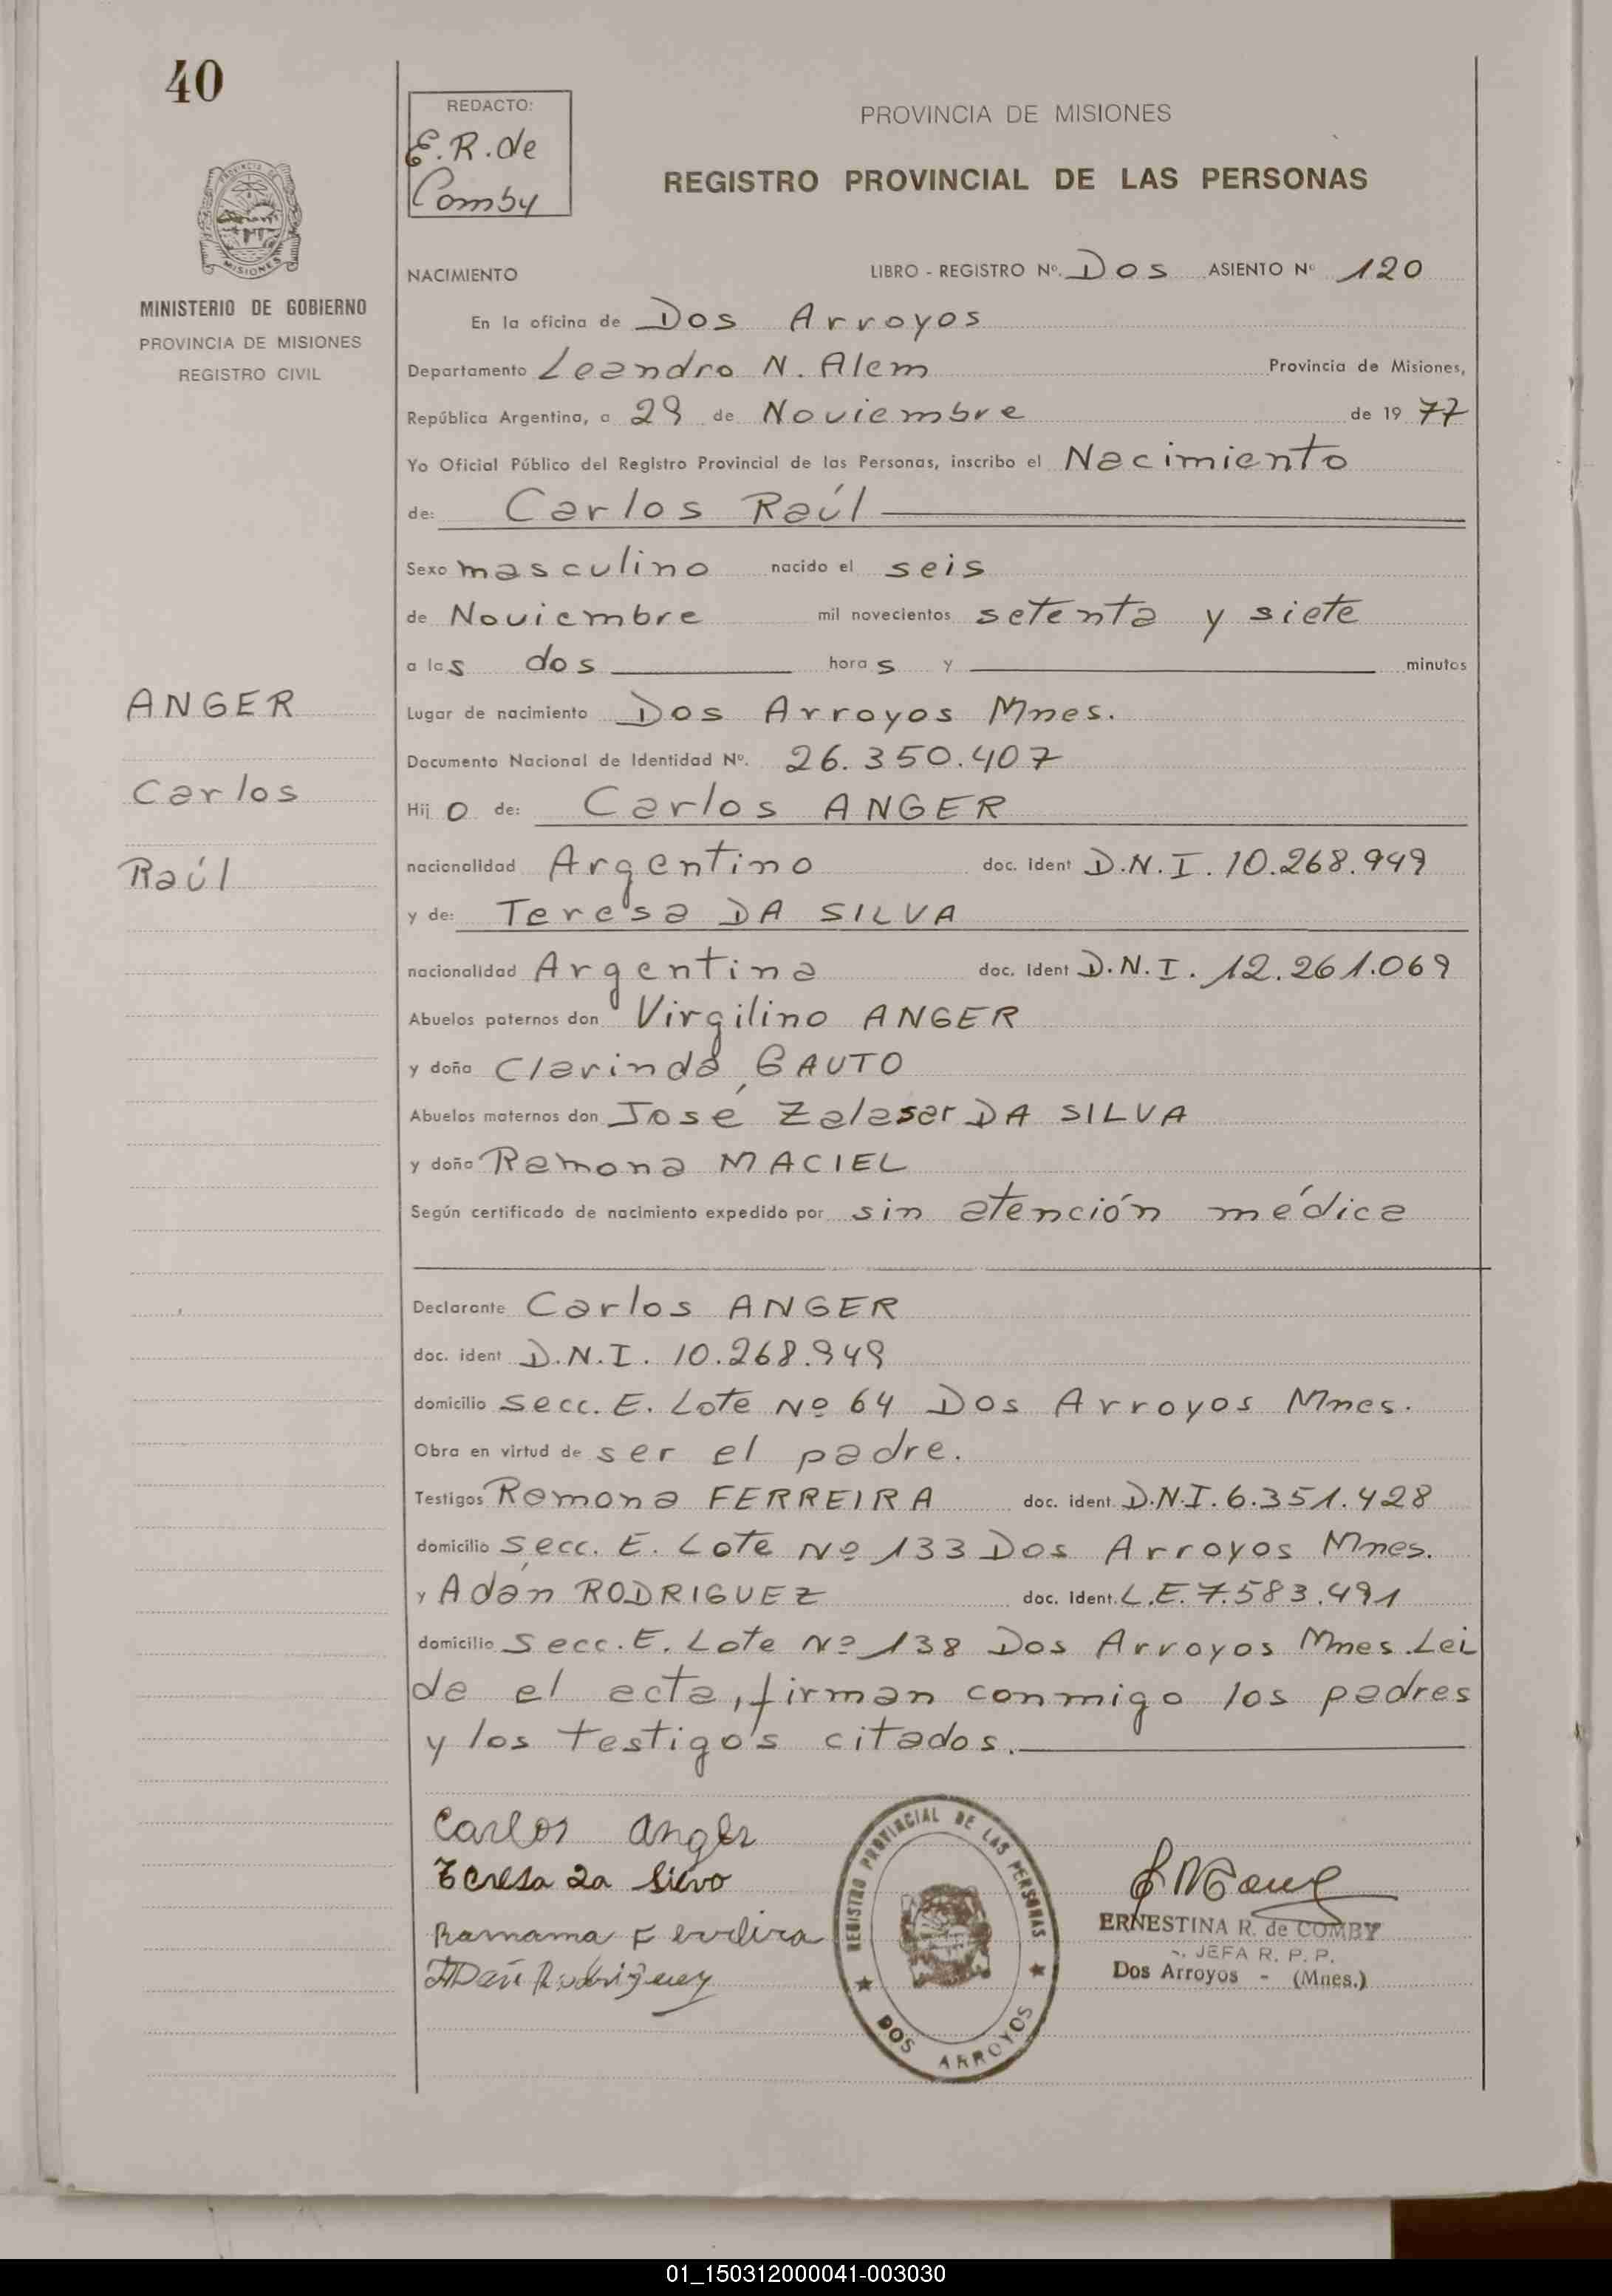 40
REDACTO:
E.R. de
Comby
PROVINCIA DE MISIONES
REGISTRO PROVINCIAL DE LAS PERSONAS
MISIONES
MINISTERIO DE GOBIERNO
PROVINCIA DE MISIONES
REGISTRO CIVIL
NACIMIENTO LIBRO - REGISTRO Nº. Dos ASIENTO Nº 120
En la oficina de Dos Arroyos
Departamento Leandro N. Alem Provincia de Misiones,
República Argentina, a 29 de Noviembre de 1977
Yo Oficial Público del Registro Provincial de las Personas, inscribo el Nacimiento
de: Carlos Raúl
Sexo masculino nacido el seis
de Noviembre mil novecientos setenta y siete
a las dos horas y minutos
ANGER
Carlos
Raúl
Lugar de nacimiento Dos Arroyos Mnes.
Documento Nacional de Identidad Nº. 26.350.407
Hijo de: Carlos ANGER
nacionalidad Argentino doc. ident D.N.I. 10.268.949
y de: Teresa DA SILVA
nacionalidad Argentina doc. ident D.N.I. 12.261.069
Abuelos paternos don Virgilino ANGER
y doña Clarinda GAUTO
Abuelos maternos don José Zalasar DA SILVA
y doña Ramona MACIEL
Según certificado de nacimiento expedido por sin atención médica
Declarante Carlos ANGER
doc. ident D.N.I. 10.268.949
domicilio secc. E. Lote Nº 64 Dos Arroyos Mnes.
Obra en virtud de ser el padre.
Testigos Ramona FERREIRA doc. ident. D.N.I. 6.351.428
domicilio secc. E. Lote Nº 133 Dos Arroyos Mnes.
y Adán RODRIGUEZ doc. ident. L.E. 7.583.491
domicilio secc. E. Lote Nº 138 Dos Arroyos Mnes. Lei
da el acta, firman conmigo los padres
y los testigos citados.
Carlos Anger
Teresa da Silva
REGISTRO PROVINCIAL DE LAS PERSONAS
DOS ARROYOS
ERNESTINA R. de COMBY
JEFA R. P. P.
Dos Arroyos - (Mnes.)
01_150312000041-003030